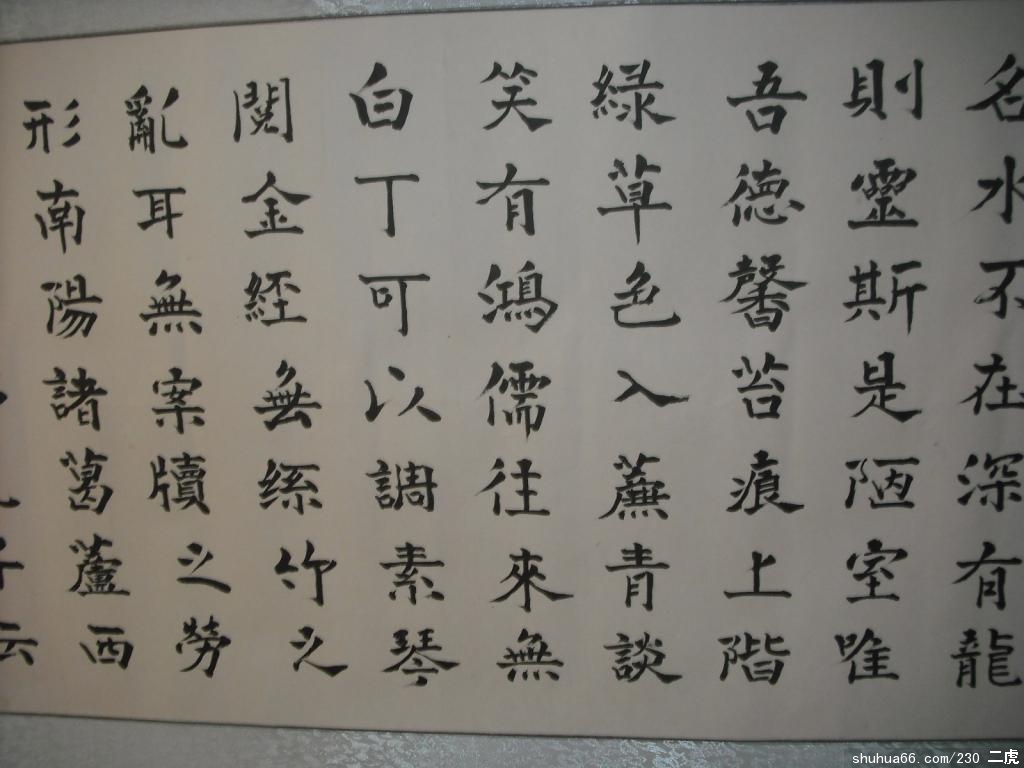 名水不在深有龍
則靈斯是陋室唯
吾德馨苔痕上階
綠草色入薕青談
笑有鴻儒往來無
白丁可以調素琴
閱金經無絲竹之
亂耳無案牘之勞
形南陽諸葛蘆西
子云
shuhua66.com/230 二虎